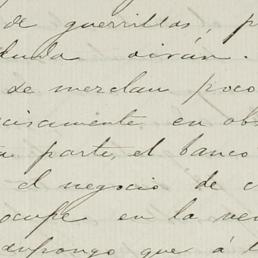 de guerrillas, p
duda dirán.
de mezclan poco
cisamente en obs
ta parte, el banco
el negocio de c
ocupe en la ven
supongo que á l